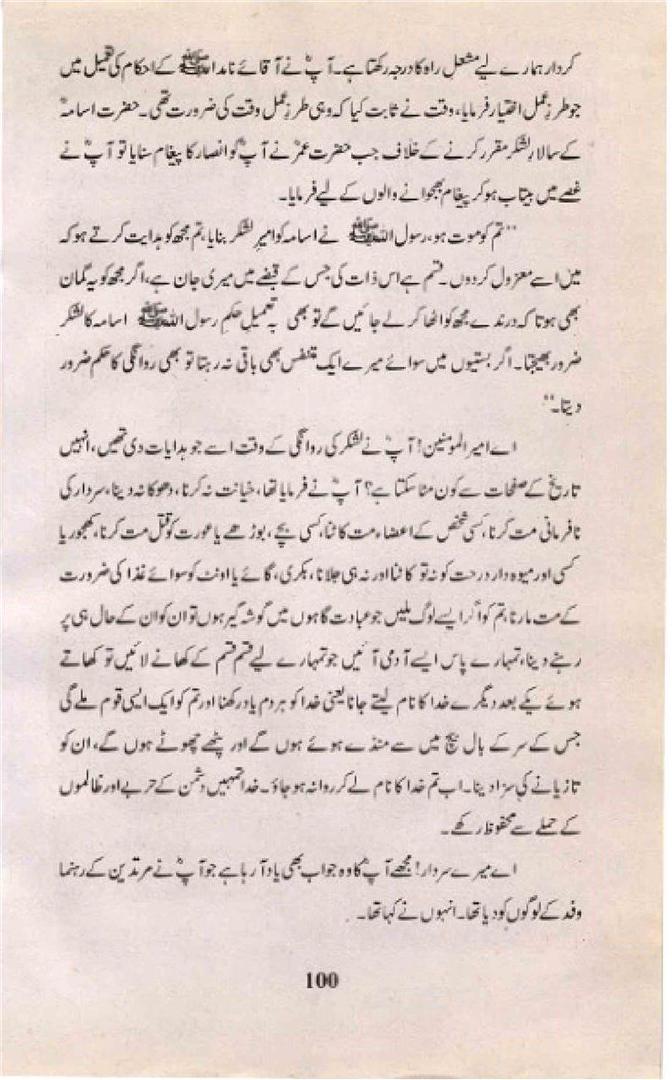 کردار ہمارے لیے مشعل راہ کا درجہ رکھتا ہے۔ آپؓ نے آقائے نامدار ﷺ کے احکام کی تعمیل میں
جو طرزِ عمل اختیار فرمایا، وقت نے ثابت کیا کہ وہی طرزِ عمل وقت کی ضرورت تھی۔ حضرت اسامہؓ
کے سالارِ لشکر مقرر کرنے کے خلاف جب حضرت عمرؓ نے آپؓ کو انصار کا پیغام سنایا تو آپؓ نے
غصے میں بیتاب ہو کر پیغام بھجوانے والوں کے لیے فرمایا۔
”تم کو موت ہو، رسول اللہ ﷺ نے اسامہ کو امیرِ لشکر بنایا، تم مجھ کو ہدایت کرتے ہو کہ
میں اسے معزول کر دوں۔ قسم ہے اس ذات کی جس کے قبضے میں میری جان ہے، اگر مجھ کو یہ گمان
بھی ہوتا کہ درندے مجھ کو اٹھا کر لے جائیں گے تو بھی بہ تعمیل حکمِ رسول اللہ ﷺ اسامہ کا لشکر
ضرور بھیجتا۔ اگر بستیوں میں سوائے میرے ایک متنفس بھی باقی نہ رہتا تو بھی روانگی کا حکم ضرور
دیتا۔“
اے امیر المومنین! آپؓ نے لشکر کی روانگی کے وقت اسے جو ہدایات دی تھیں، انہیں
تاریخ کے صفحات سے کون مٹا سکتا ہے؟ آپؓ نے فرمایا تھا، خیانت نہ کرنا، دھوکا نہ دینا، سردار کی
نافرمانی مت کرنا، کسی شخص کے اعضاء مت کاٹنا، کسی بچے، بوڑھے یا عورت کو قتل مت کرنا، کھجور یا
کسی اور میوہ دار درخت کو نہ تو کاٹنا اور نہ ہی جلانا، بکری، گائے یا اونٹ کو سوائے غذا کی ضرورت
کے مت مارنا، تم کو اگر ایسے لوگ ملیں جو عبادت گاہوں میں گوشہ گیر ہوں تو ان کو ان کے حال ہی پر
رہنے دینا، تمہارے پاس ایسے آدمی آئیں جو تمہارے لیے قسم قسم کے کھانے لائیں تو کھاتے
ہوئے یکے بعد دیگرے خدا کا نام لیتے جانا یعنی خدا کو ہر دم یاد رکھنا اور تم کو ایک ایسی قوم ملے گی
جس کے سر کے بال بیچ میں سے منڈے ہوئے ہوں گے اور پٹھے چھوٹے ہوں گے، ان کو
تازیانے کی سزا دینا۔ اب تم خدا کا نام لے کر روانہ ہو جاؤ۔ خدا تمہیں دشمن کے حربے اور ظالموں
کے حملے سے محفوظ رکھے۔
اے میرے سردار! مجھے آپؓ کا وہ جواب بھی یاد آ رہا ہے جو آپؓ نے مرتدین کے رہنما
وفد کے لوگوں کو دیا تھا۔ انہوں نے کہا تھا۔
100